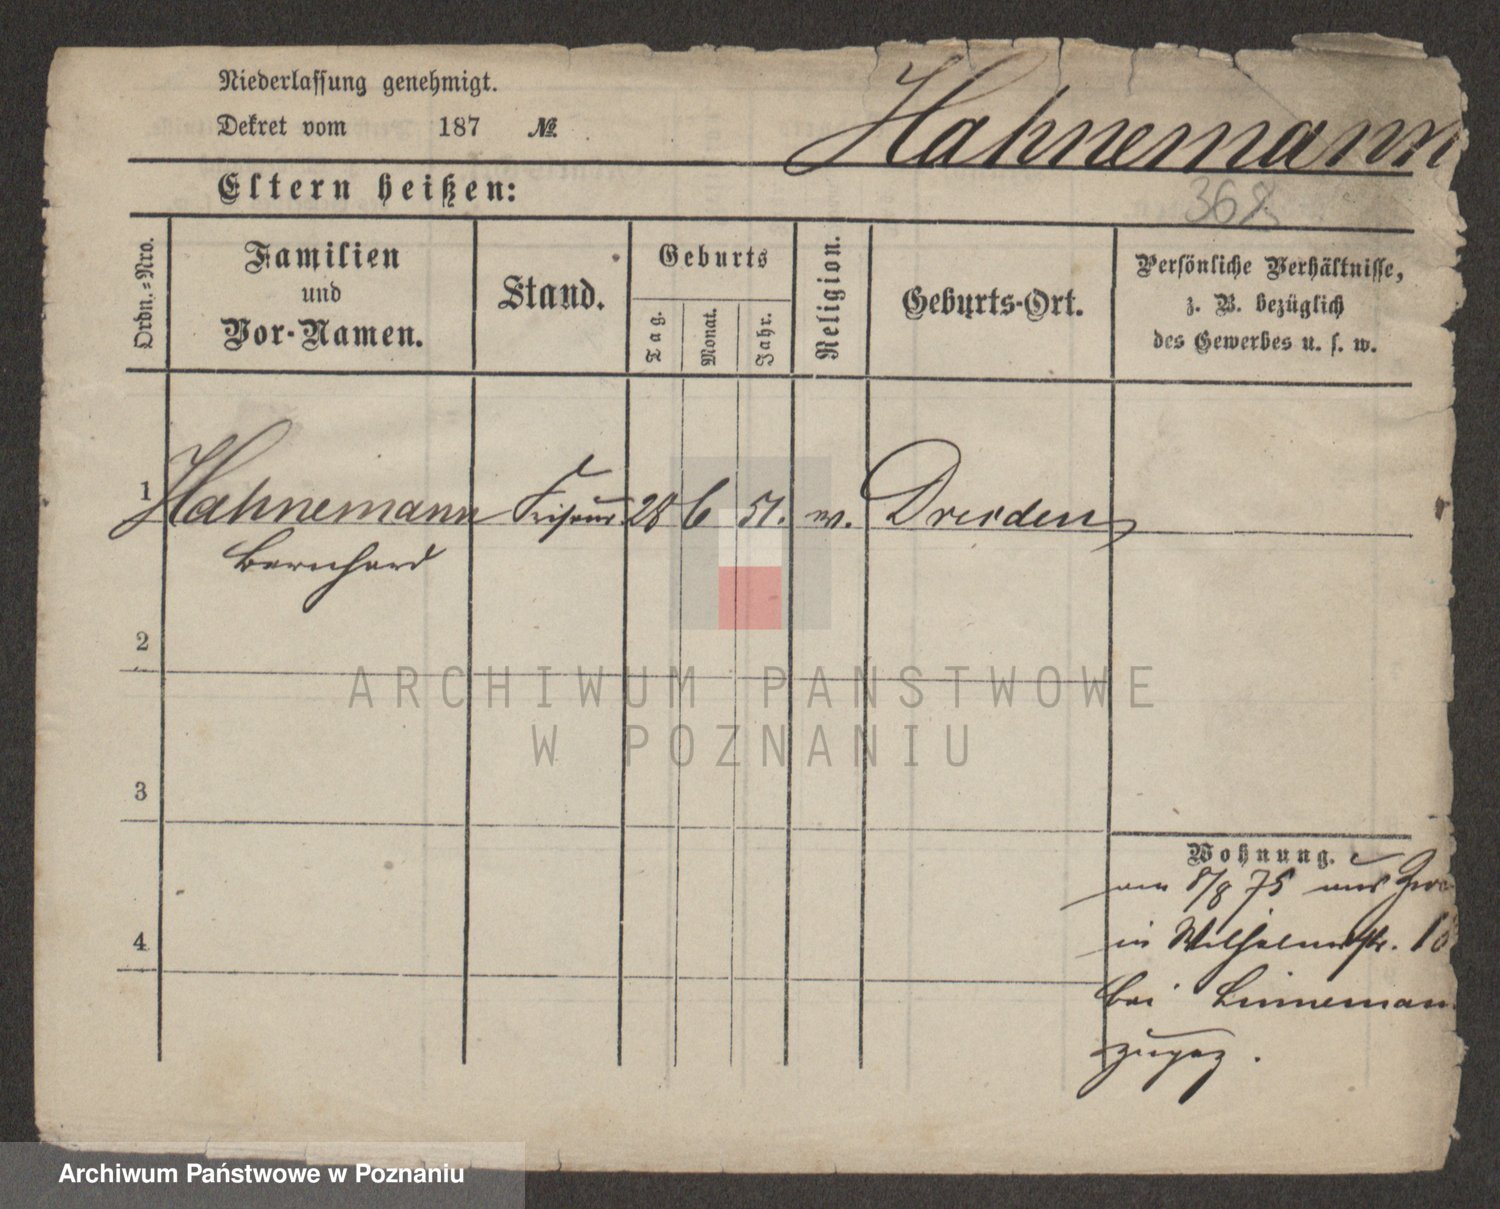 Niederlassung genehmigt.
Dekret vom 187 №
Hahnemann
368
Eltern heißen:
Ordn.=Nro.
Familien
und
Vor-Namen.
Stand.
Geburts
Tag.
Monat.
Jahr.
Religion.
Geburts-Ort.
Persönliche Verhältnisse,
z. B. bezüglich
des Gewerbes u. s. w.
1 Hahnemann Friseur 28 6 51. Dresden
Bernhard
2
3
4
Wohnung.
am 8/8 75 aus
in Wilhelmstr. 18
bei Linneman
zugez.
ARCHIWUM PAŃSTWOWE
W POZNANIU
Archiwum Państwowe w Poznaniu